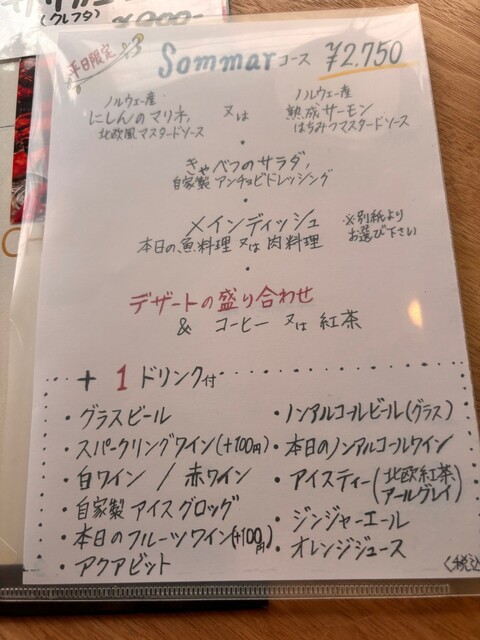 (クレフタ)
平日限定
Sommar コース ¥2,750
ノルウェー産
にしんのマリネ,
北欧風マスタードソース
又は
ノルウェー産
熟成サーモン
はちみつマスタードソース
きゃべつのサラダ,
自家製 アンチョビドレッシング
メインディッシュ
本日の魚料理 又は 肉料理
※別紙より
お選び下さい
デザートの盛り合わせ
& コーヒー 又は 紅茶
+ 1 ドリンク付
・グラスビール
・スパークリングワイン(+100円)
・白ワイン / 赤ワイン
・自家製 アイスグロッグ
・本日のフルーツワイン(+100円)
・アクアビット
・ノンアルコールビール(グラス)
・本日のノンアルコールワイン
・アイスティー(北欧紅茶
アールグレイ)
・ジンジャーエール
・オレンジジュース